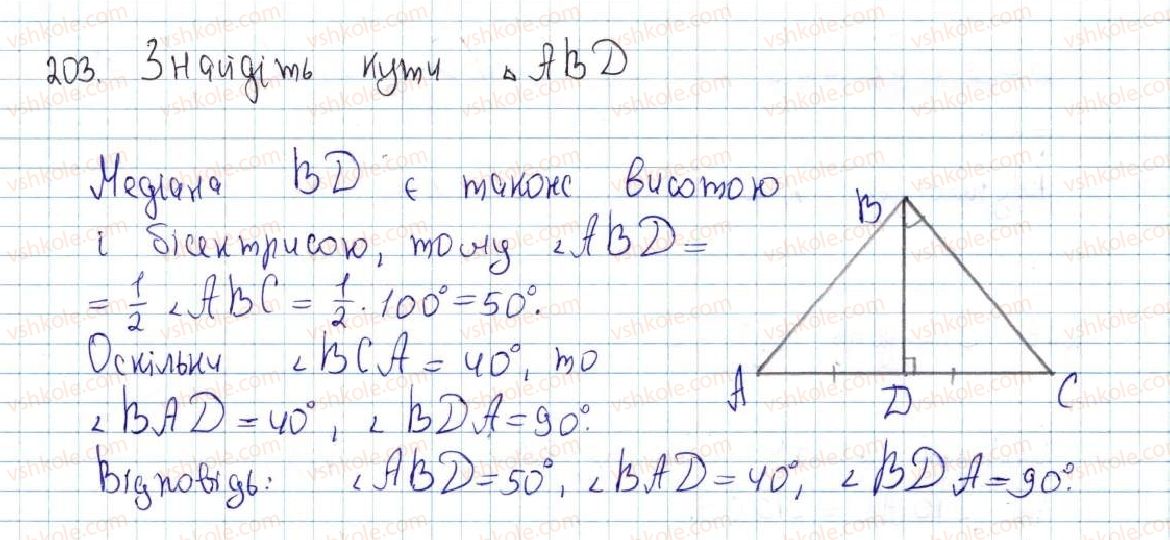 203. Знайдіть кути △ABD
Медіана BD є також висотою
і бісектрисою, тому ∠ABD =
= 1/2 ∠ABC = 1/2 · 100° = 50°.
Оскільки ∠BCA = 40°, то
∠BAD = 40°, ∠BDA = 90°.
Відповідь: ∠ABD = 50°, ∠BAD = 40°, ∠BDA = 90°.
B
A D C
vshkole.com